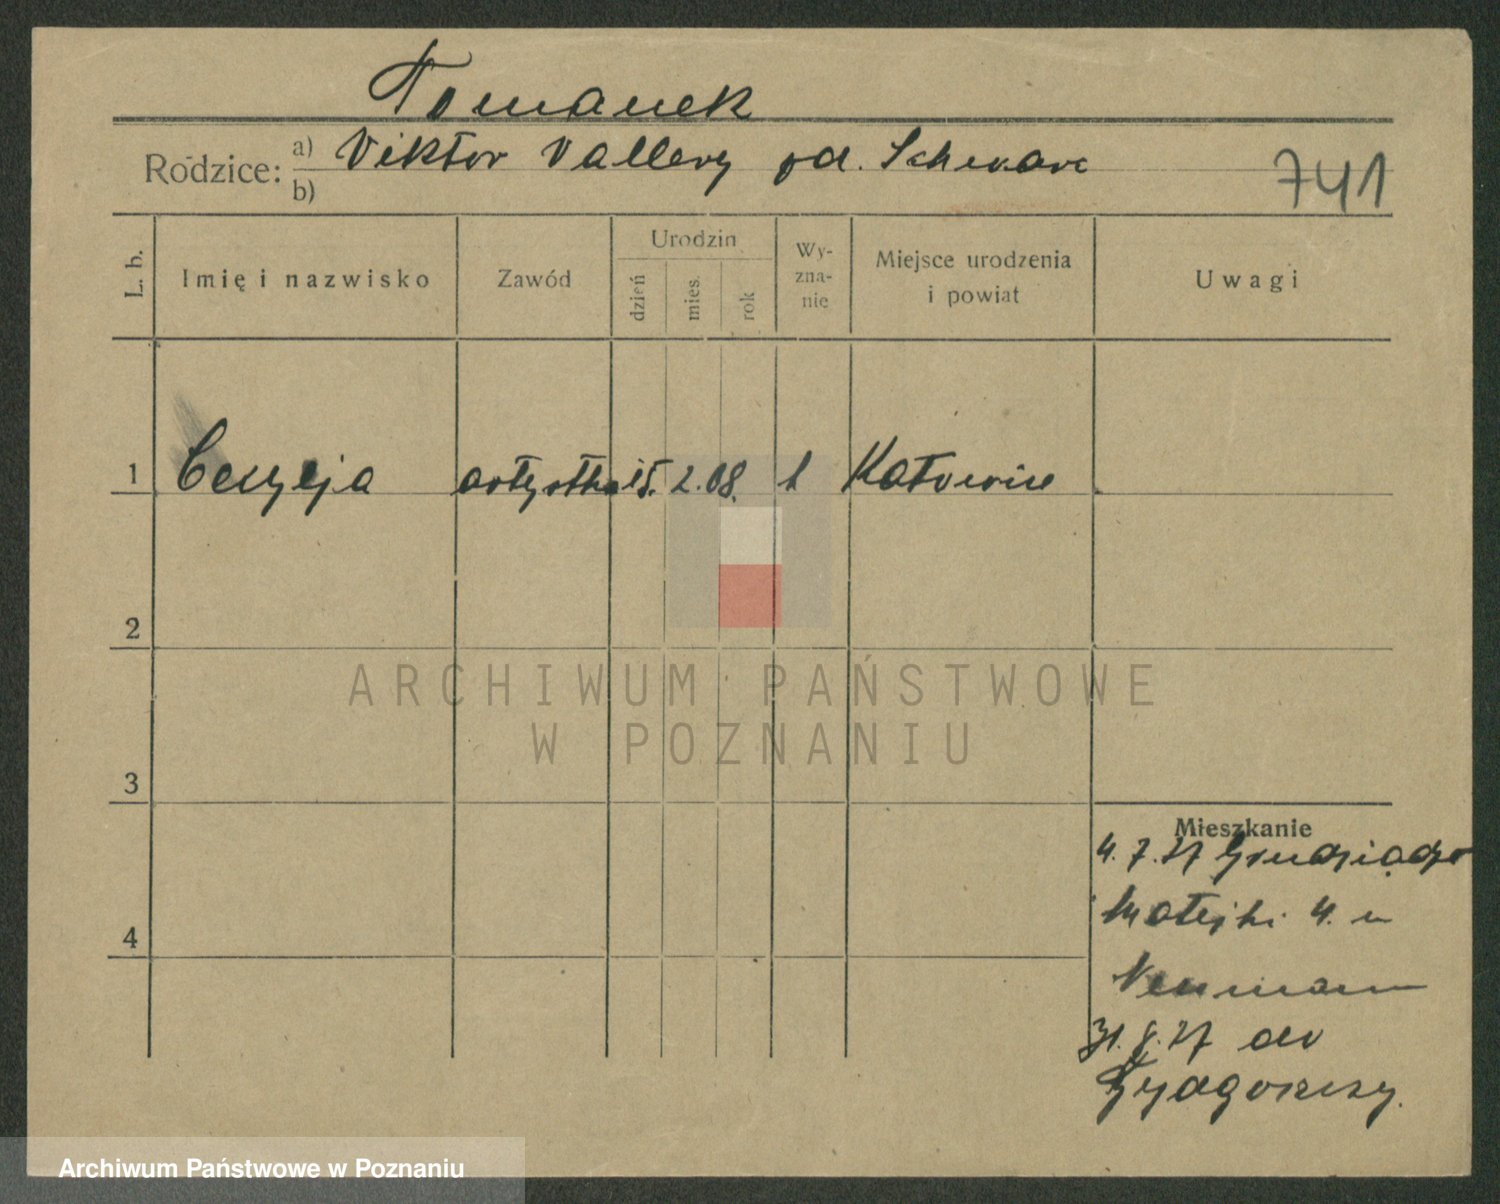 Tomanek
Rodzice: a) Viktor Vallery
b)
741
L. b.
Imię i nazwisko
Zawód
Urodzin
dzień
mies.
rok
Wy-
zna-
nie
Miejsce urodzenia
i powiat
Uwagi
1 Cecylja artystka 15. 2. 08. Katowice
2
3
4
Mieszkanie
4. 7. 27
Matejki 4. u
Neumann
31. 8. 27 do
Bydgoszczy.
ARCHIWUM PAŃSTWOWE
W POZNANIU
Archiwum Państwowe w Poznaniu